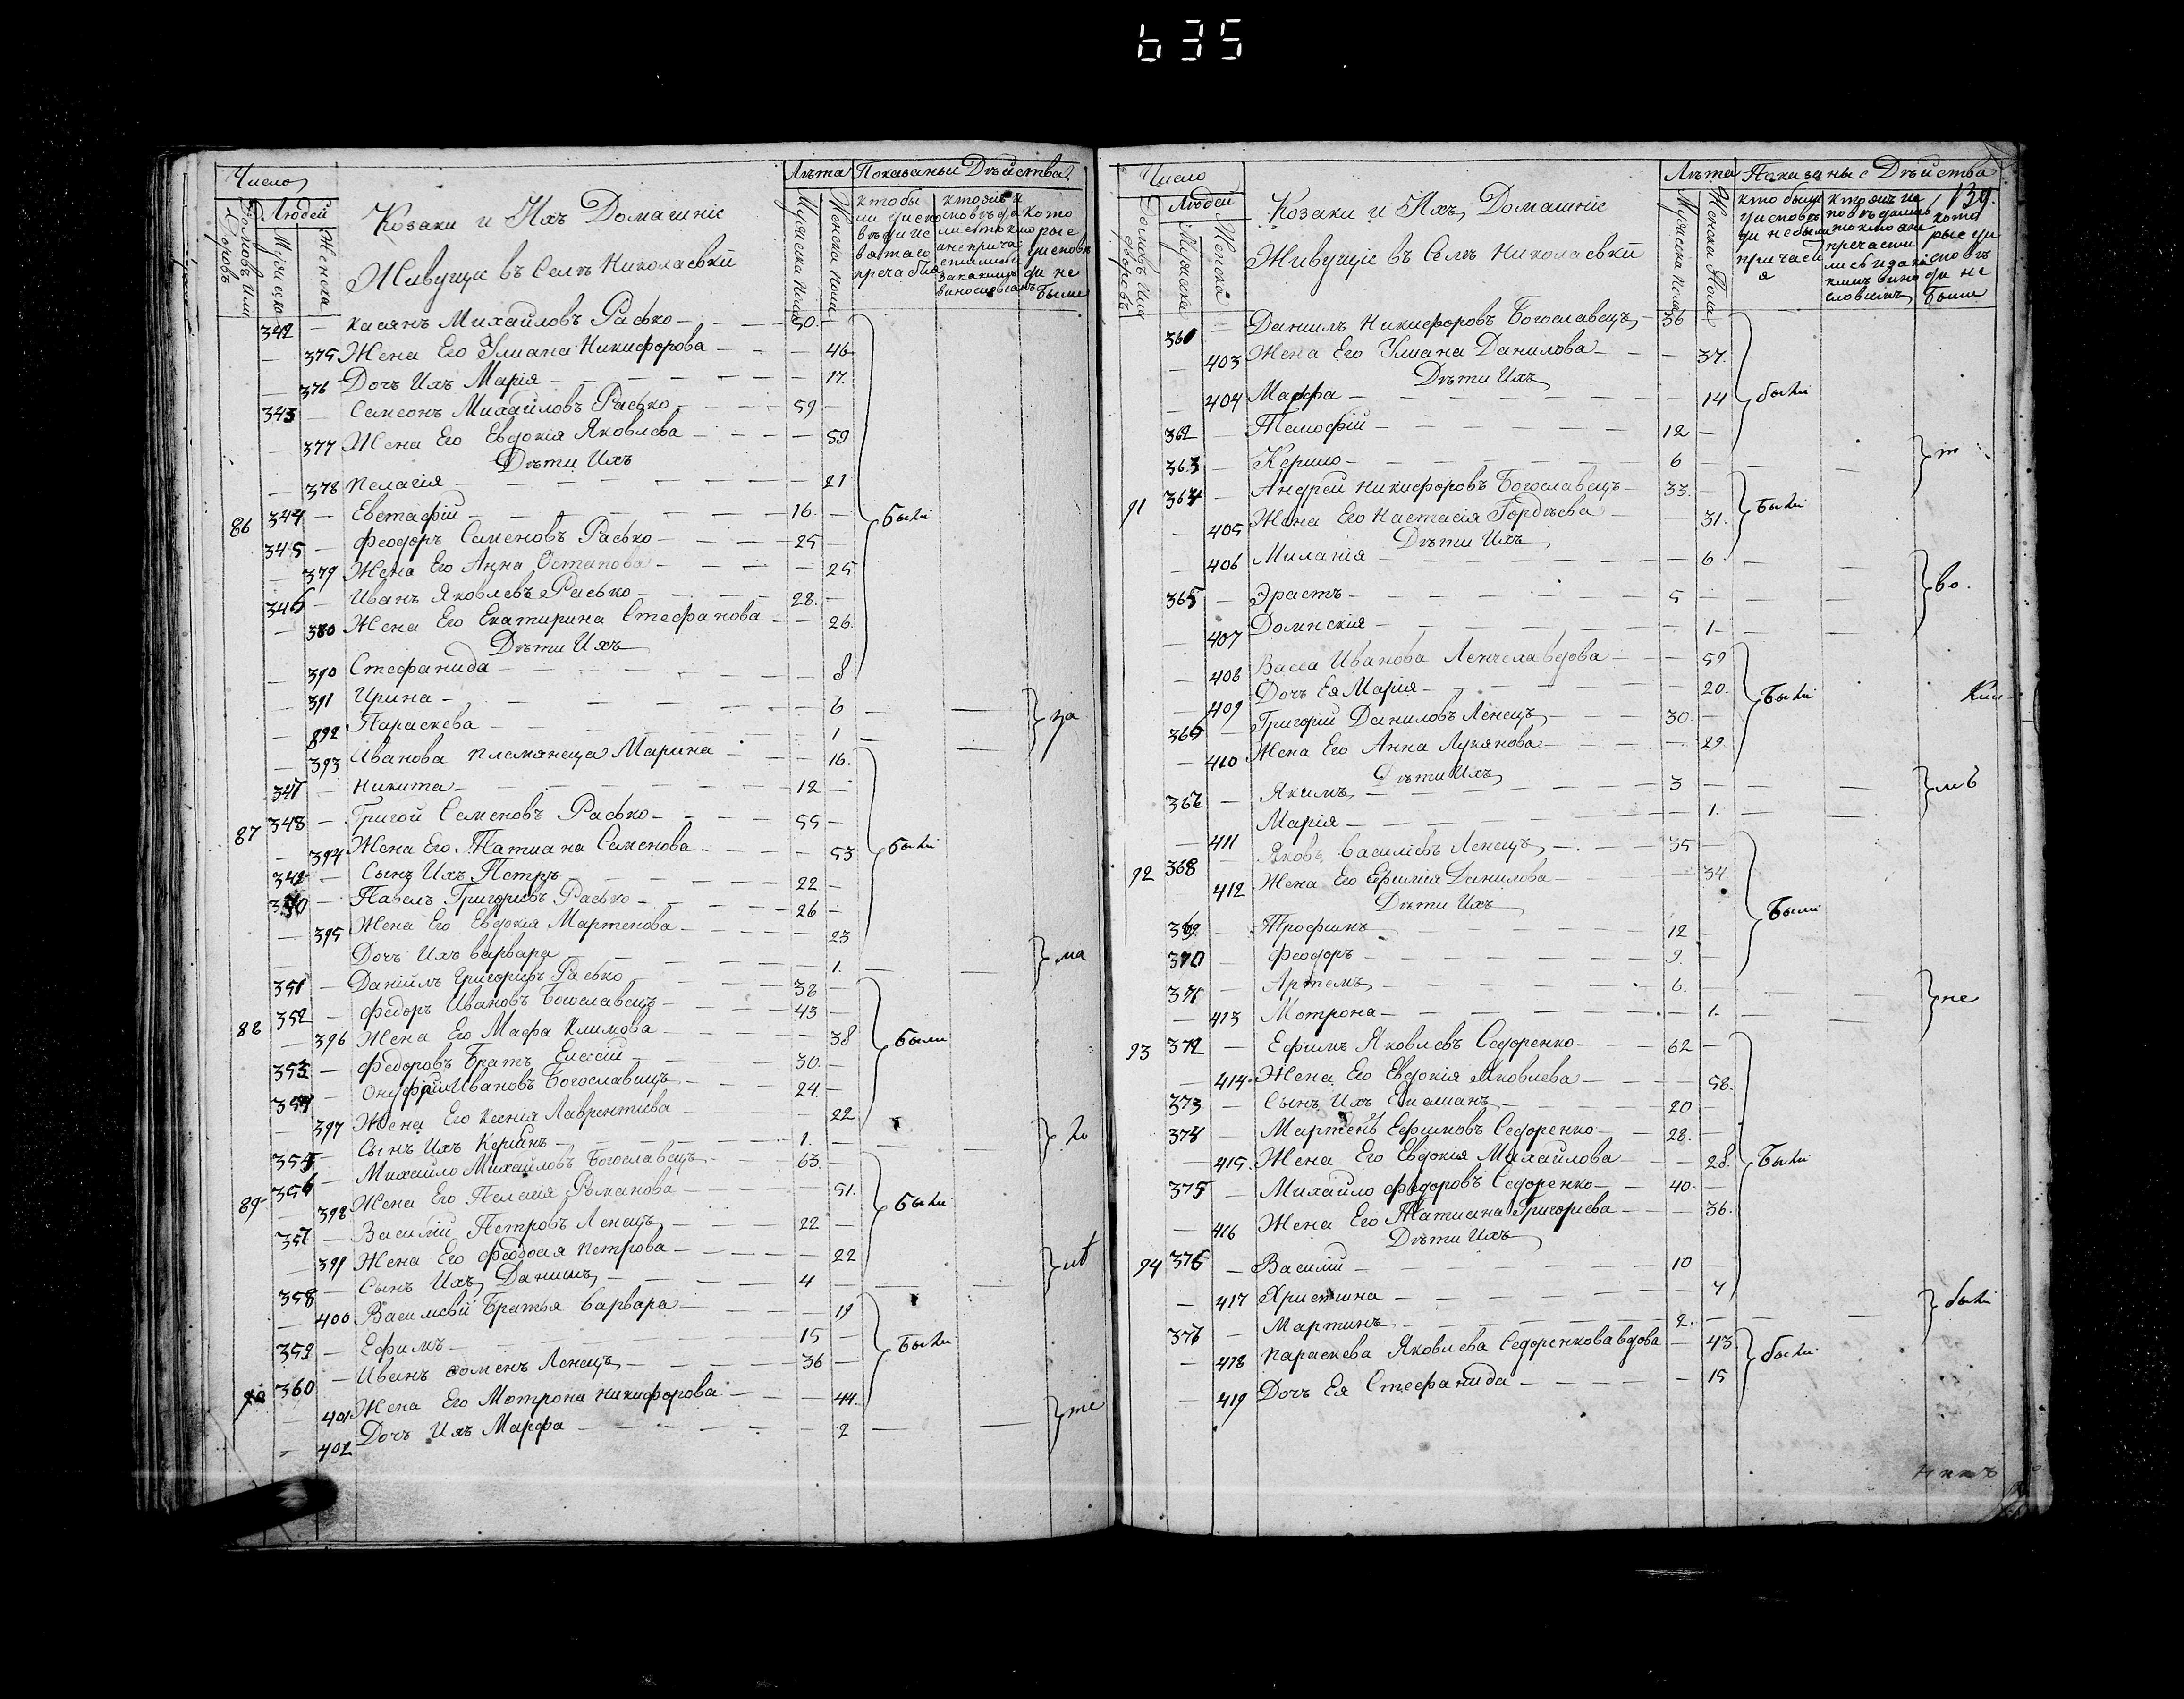 635
Число
Людей
Домовъ Или Дворовъ
Мужеска
Женска
Козаки и Ихъ Домашніе
Живущие въ Селѣ Николаевки
Лѣта
Мужеска Пола
Женска Пола
Показаныи Дѣйства
342 — Касянъ Михайловъ Расько — 50 —
— 375 Жена Его Улиана Никифорова — 46
— 376 Дочъ Ихъ Марія — 17
343 — Семеонъ Михайловъ Расько — 59 —
— 377 Жена Его Евдокія Яковлева — 59
Дѣти Ихъ
— 378 Пелагія — 21
86 344 — Евстафій — 16 — были
345 — Феодоръ Семеновъ Расько — 25 —
— 379 Жена Его Анна Остапова — 25
346 — Иванъ Яковлевъ Расько — 28 —
— 380 Жена Его Екатирина Стефанова — 26
Дѣти Ихъ
— 390 Стефанида — 8
— 391 Ирина — 6 — — за
— 892 Параскева — 1 —
— 393 Иванова племянеца Марина — 16
347 — Никита — 12 —
87 348 — Григой Семеновъ Расько — 55 —
— 394 Жена Его Татиана Семенова — 53 были
342 — Сынъ Ихъ Петръ — 22 —
350 — Павелъ Григоріевъ Расько — 26 —
— 395 Жена Его Евдокія Мартенова — 23
— Дочъ Ихъ Варвара — 1 — ма
351 — Даніилъ Григоріевъ Расько — 38 —
88 352 — Федоръ Ивановъ Богославецъ — 43 —
— 396 Жена Его Мафа Климова — 38 были
353 — Федоровъ Братъ Елисій — 30 —
354 — Онуфрій Ивановъ Богославецъ — 24 —
— 397 Жена Его Ксенія Лаврентиева — 22
355 — Сынъ Ихъ Кериянъ — 1 — ло
89 356 — Михайло Михайловъ Богославецъ — 63 —
— 398 Жена Его Пелагія Романова — 51 были
357 — Василій Петровъ Ленецъ — 22 —
— 399 Жена Его Феодосія Петрова — 22
358 — Сынъ Ихъ Данилъ — 4 —
— 400 Василиевы Братья Варвара — 19
359 — Ефимъ — 15 — были
90 360 — Иванъ Семенъ Ленецъ — 36 —
— 401 Жена Его Мотрона Никифорова — 44
— 402 Дочъ Ихъ Марфа — 2 — — те
Число
Людей
Домовъ Или Дворовъ
Мужеска
Женска
Козаки и Ихъ Домашніе
Живущіе въ Селѣ Николаевки
Лѣта
Мужеска Пола
Женска Пола
Показаные Дѣйства
139.
361 — Данилъ Никифоровъ Богославецъ — 36 —
— 403 Жена Его Улиана Данилова — 37
Дѣти Ихъ
— 404 Марфа — 14 были
362 — Темофій — 12 —
363 — Керило — 6 — — т
91 364 — Андрей Никифоровъ Богославецъ — 33 —
— 405 Жена Его Настасія Гордѣева — 31 были
Дѣти Ихъ
— 406 Миланія — 6 —
365 — Эрастъ — 5 — — во.
— 407 Домнекія — 1 —
— 408 Васса Иванова Ленчела вдова — 59
— 409 Дочъ Ея Марія — 20 были
365 — Григорій Даниловъ Ленецъ — 30 —
— 410 Жена Его Анна Лукянова — 29
Дѣти Ихъ
366 — Якимъ — 3 — — }
— 411 Марія — 1
92 368 — Яковъ Василіевъ Ленецъ — 35 —
— 412 Жена Его Ефимія Данилова — 34
Дѣти Ихъ
369 — Трофимъ — 12 — были
370 — Феодоръ — 9 —
371 — Артемъ — 6 —
— 413 Мотрона — 1 — — не
93 372 — Ефимъ Яковлевъ Седоренко — 62 —
— 414 Жена Его Евдокія Яковлева — 58
373 — Сынъ Ихъ Емелианъ — 20 —
374 — Мартенъ Ефимовъ Седоренко — 28 —
— 415 Жена Его Евдокія Михайлова — 28 были
375 — Михайло Федоровъ Седоренко — 40 —
— 416 Жена Его Татиана Григориева — 36
Дѣти Ихъ
94 376 — Василій — 10 —
— 417 Христина — 4
376 — Мартинъ — 2 — — были
— 418 Параскева Яковлева Седоренкова вдова — 43
— 419 Дочъ Ея Стефанида — 15 были